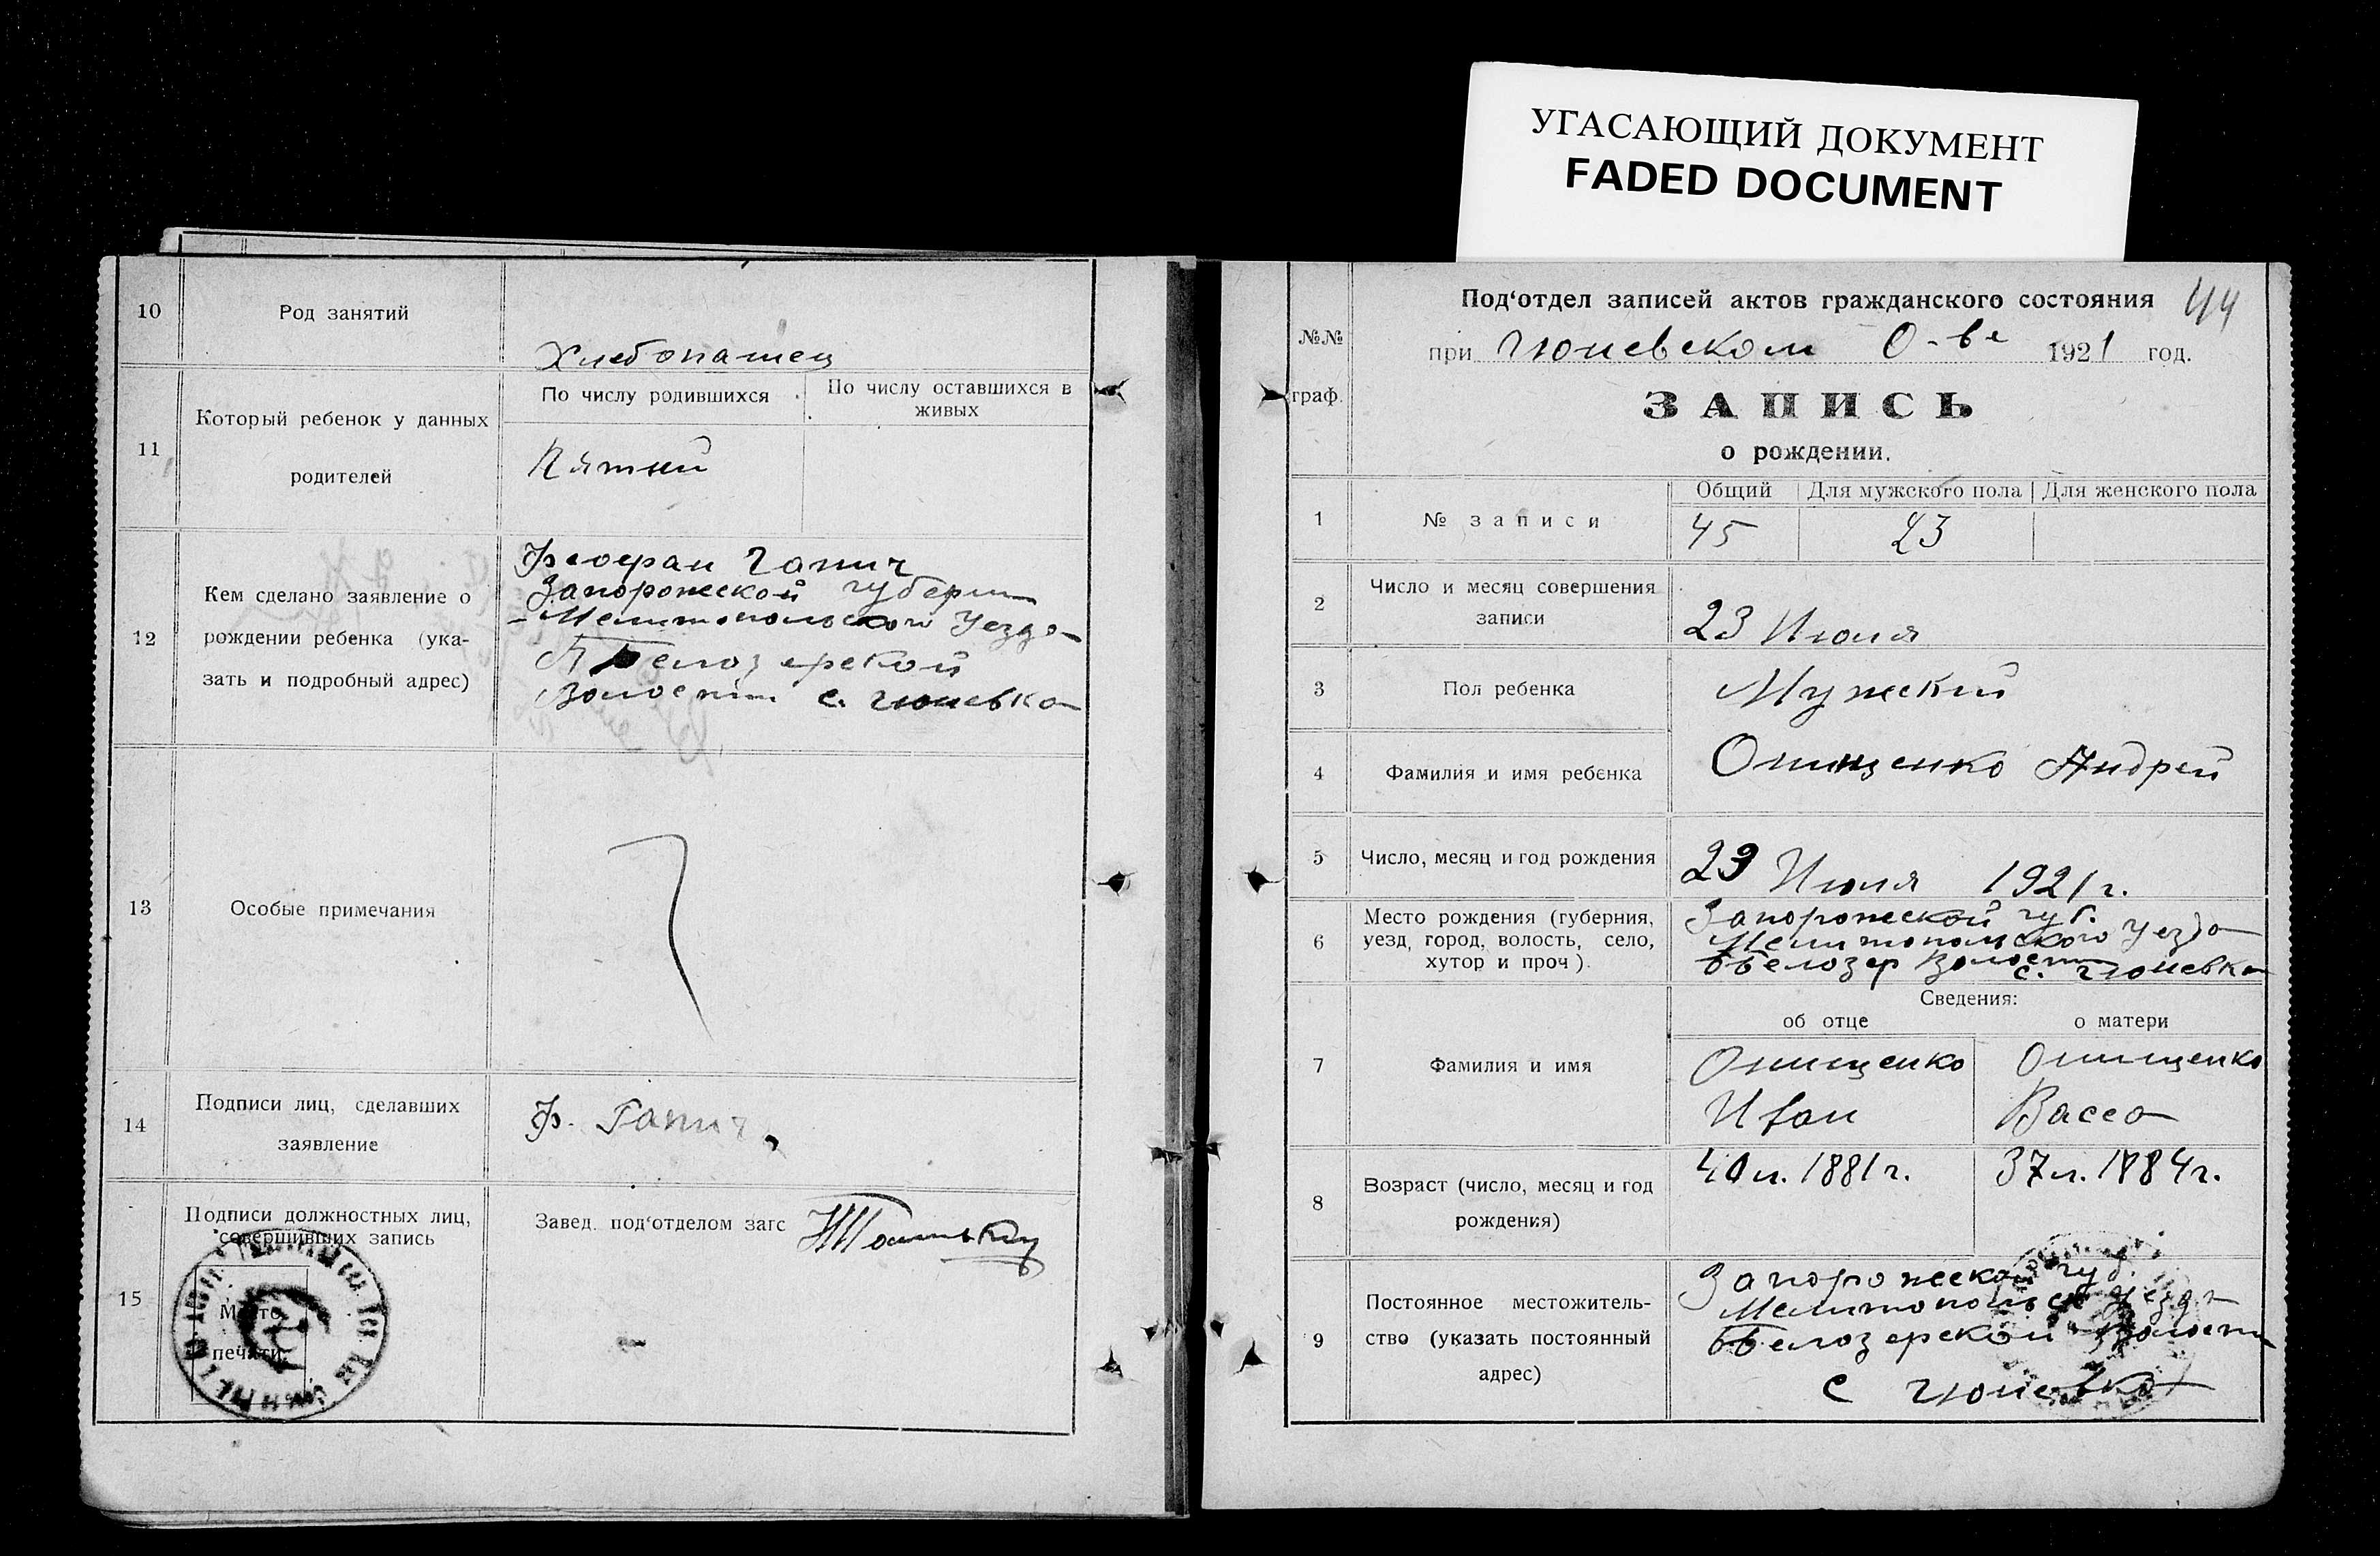 УГАСАЮЩИЙ ДОКУМЕНТ
FADED DOCUMENT
10
Род занятий
Хлебопашец
11
Который ребенок у данных
родителей
По числу родившихся
По числу оставшихся в
живых
Пятый
12
Кем сделано заявление о
рождении ребенка (ука-
зать и подробный адрес)
Феофан Гапич
Запорожской губернии
Мелитопольского Уезда
Белозерской
Волости с. Гюневка
13
Особые примечания
14
Подписи лиц, сделавших
заявление
Ф. Гапич
15
Подписи должностных лиц,
совершивших запись
Место
печати.
Завед. под‘отделом загс
44
№№
граф.
Под‘отдел записей актов гражданского состояния
при Гюневском О-ве 1921 год.
ЗАПИСЬ
о рождении.
1
№ записи
Общий
Для мужского пола
Для женского пола
45
23
2
Число и месяц совершения
записи
23 Июля
3
Пол ребенка
Мужский
4
Фамилия и имя ребенка
Онищенко Андрей
5
Число, месяц и год рождения
Июля 1921 г.
6
Место рождения (губерния,
уезд, город, волость, село,
хутор и проч).
Запорожской губ.
Мелитопольского Уезда
Белозер Волости
с. Гюневка
Сведения:
об отце
о матери
7
Фамилия и имя
Онищенко
Иван
Онищенко
Васса
8
Возраст (число, месяц и год
рождения)
40 л. 1881 г.
37 л. 1884 г.
9
Постоянное местожитель-
ство (указать постоянный
адрес)
Запорожской губ.
Мелитопольск Уезда
Белозерской Волости
с Гюневка